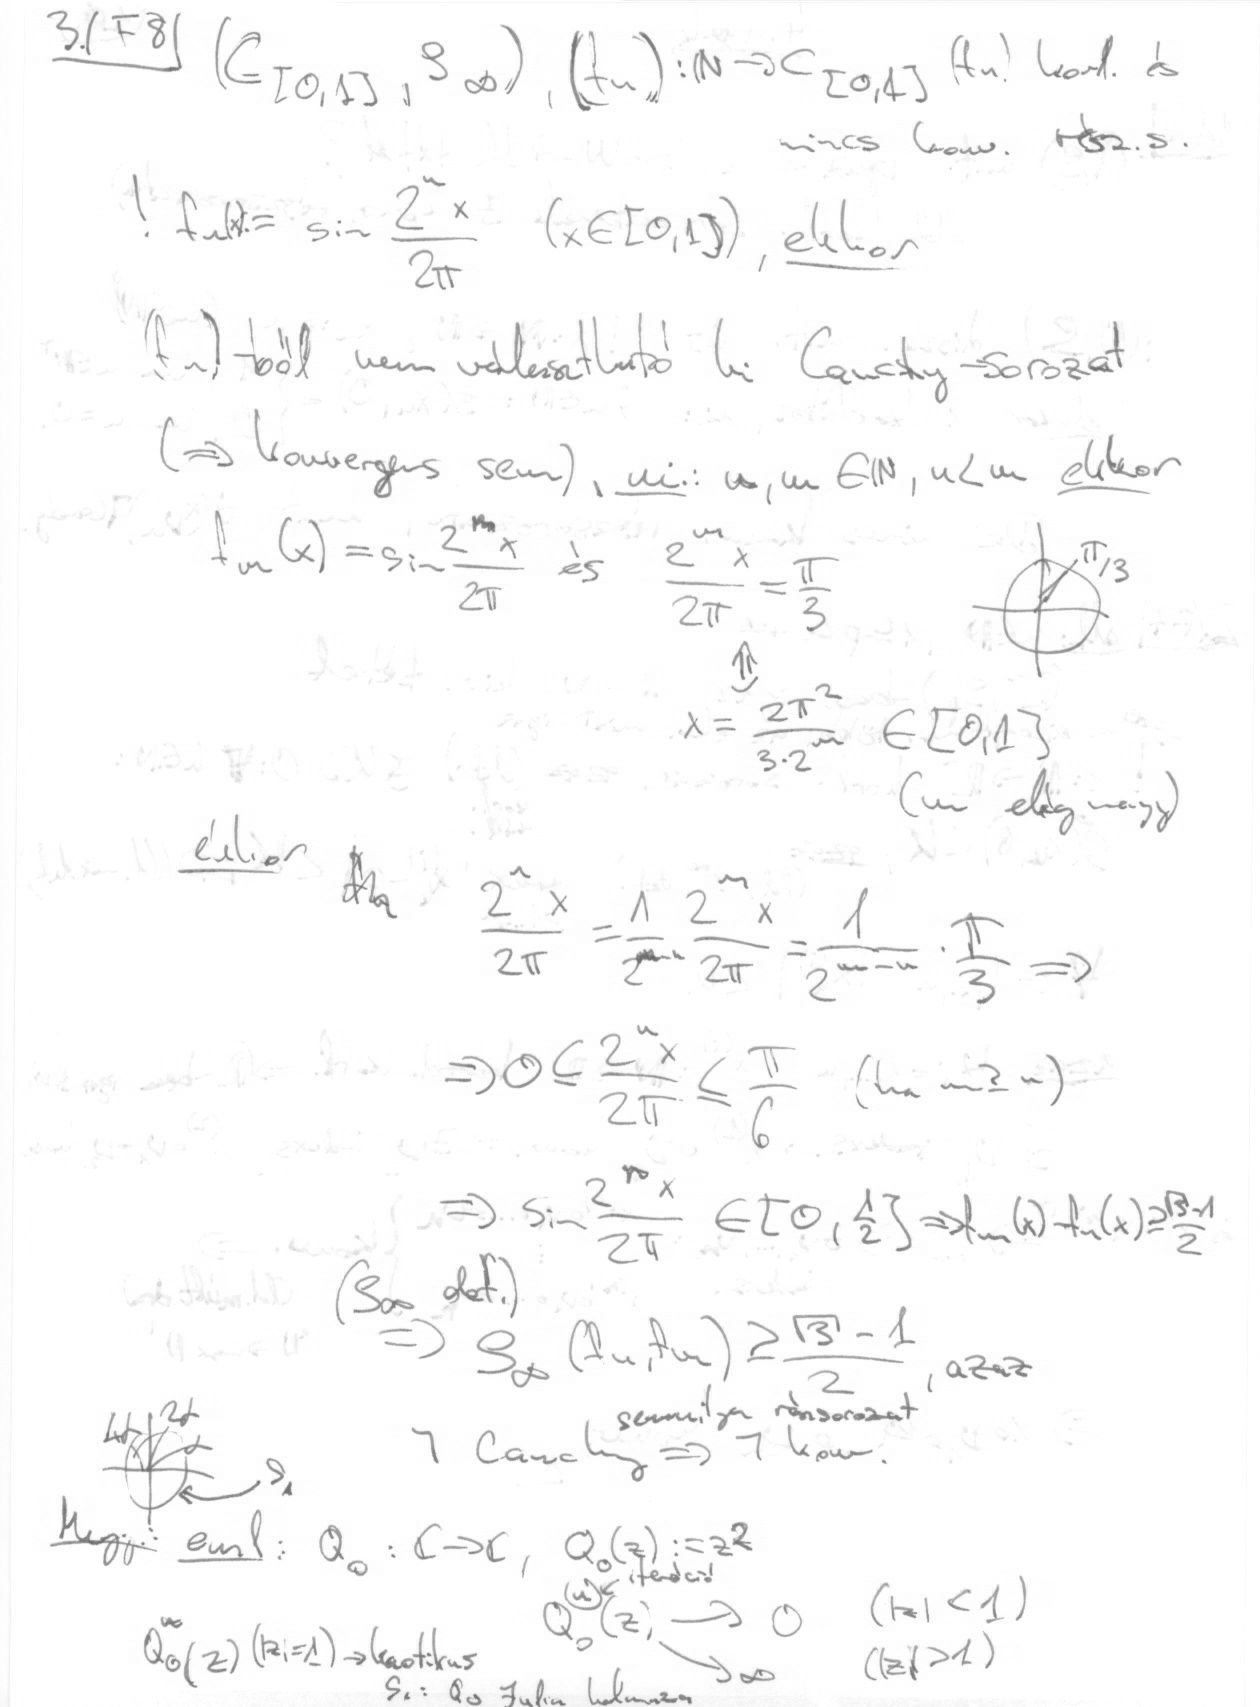 3./F8/ (C[0,1], ρ∞), (fn): ℕ→C[0,1] (fn) korl. és
nincs konv. rész.s.
! fn(x):= sin 2ⁿx/2π (x∈[0,1]), ekkor
(fn)-ből nem választható ki Cauchy-sorozat
(⇒ konvergens sem), ui.: n, m ∈ ℕ, n<m ekkor
fm(x) = sin 2ᵐx/2π és 2ᵐx/2π = π/3
π/3
⇕
x = 2π²/3·2ᵐ ∈ [0,1]
(m elég nagy)
ekkor 2ⁿx/2π = 1/2ᵐ⁻ⁿ 2ᵐx/2π = 1/2ᵐ⁻ⁿ · π/3 ⇒
⇒ 0 ≤ 2ⁿx/2π ≤ π/6 (ha m≥n)
⇒ sin 2ⁿx/2π ∈ [0, 1/2] ⇒ fm(x)-fn(x) ≥ √3-1/2
(ρ∞ def.)
⇒ ρ∞(fn, fm) ≥ √3-1/2, azaz
semmilyen részsorozat
¬ Cauchy ⇒ ¬ konv.
4α 2α α
S₁
Megj.: eml: Q₀: ℂ→ℂ, Q₀(z):=z²
iteráció
Q₀⁽ⁿ⁾(z) → 0 (|z|<1)
→ ∞ (|z|>1)
Q₀ⁿ(z) (|z|=1) → kaotikus
S₁: Q₀ Julia halmaza